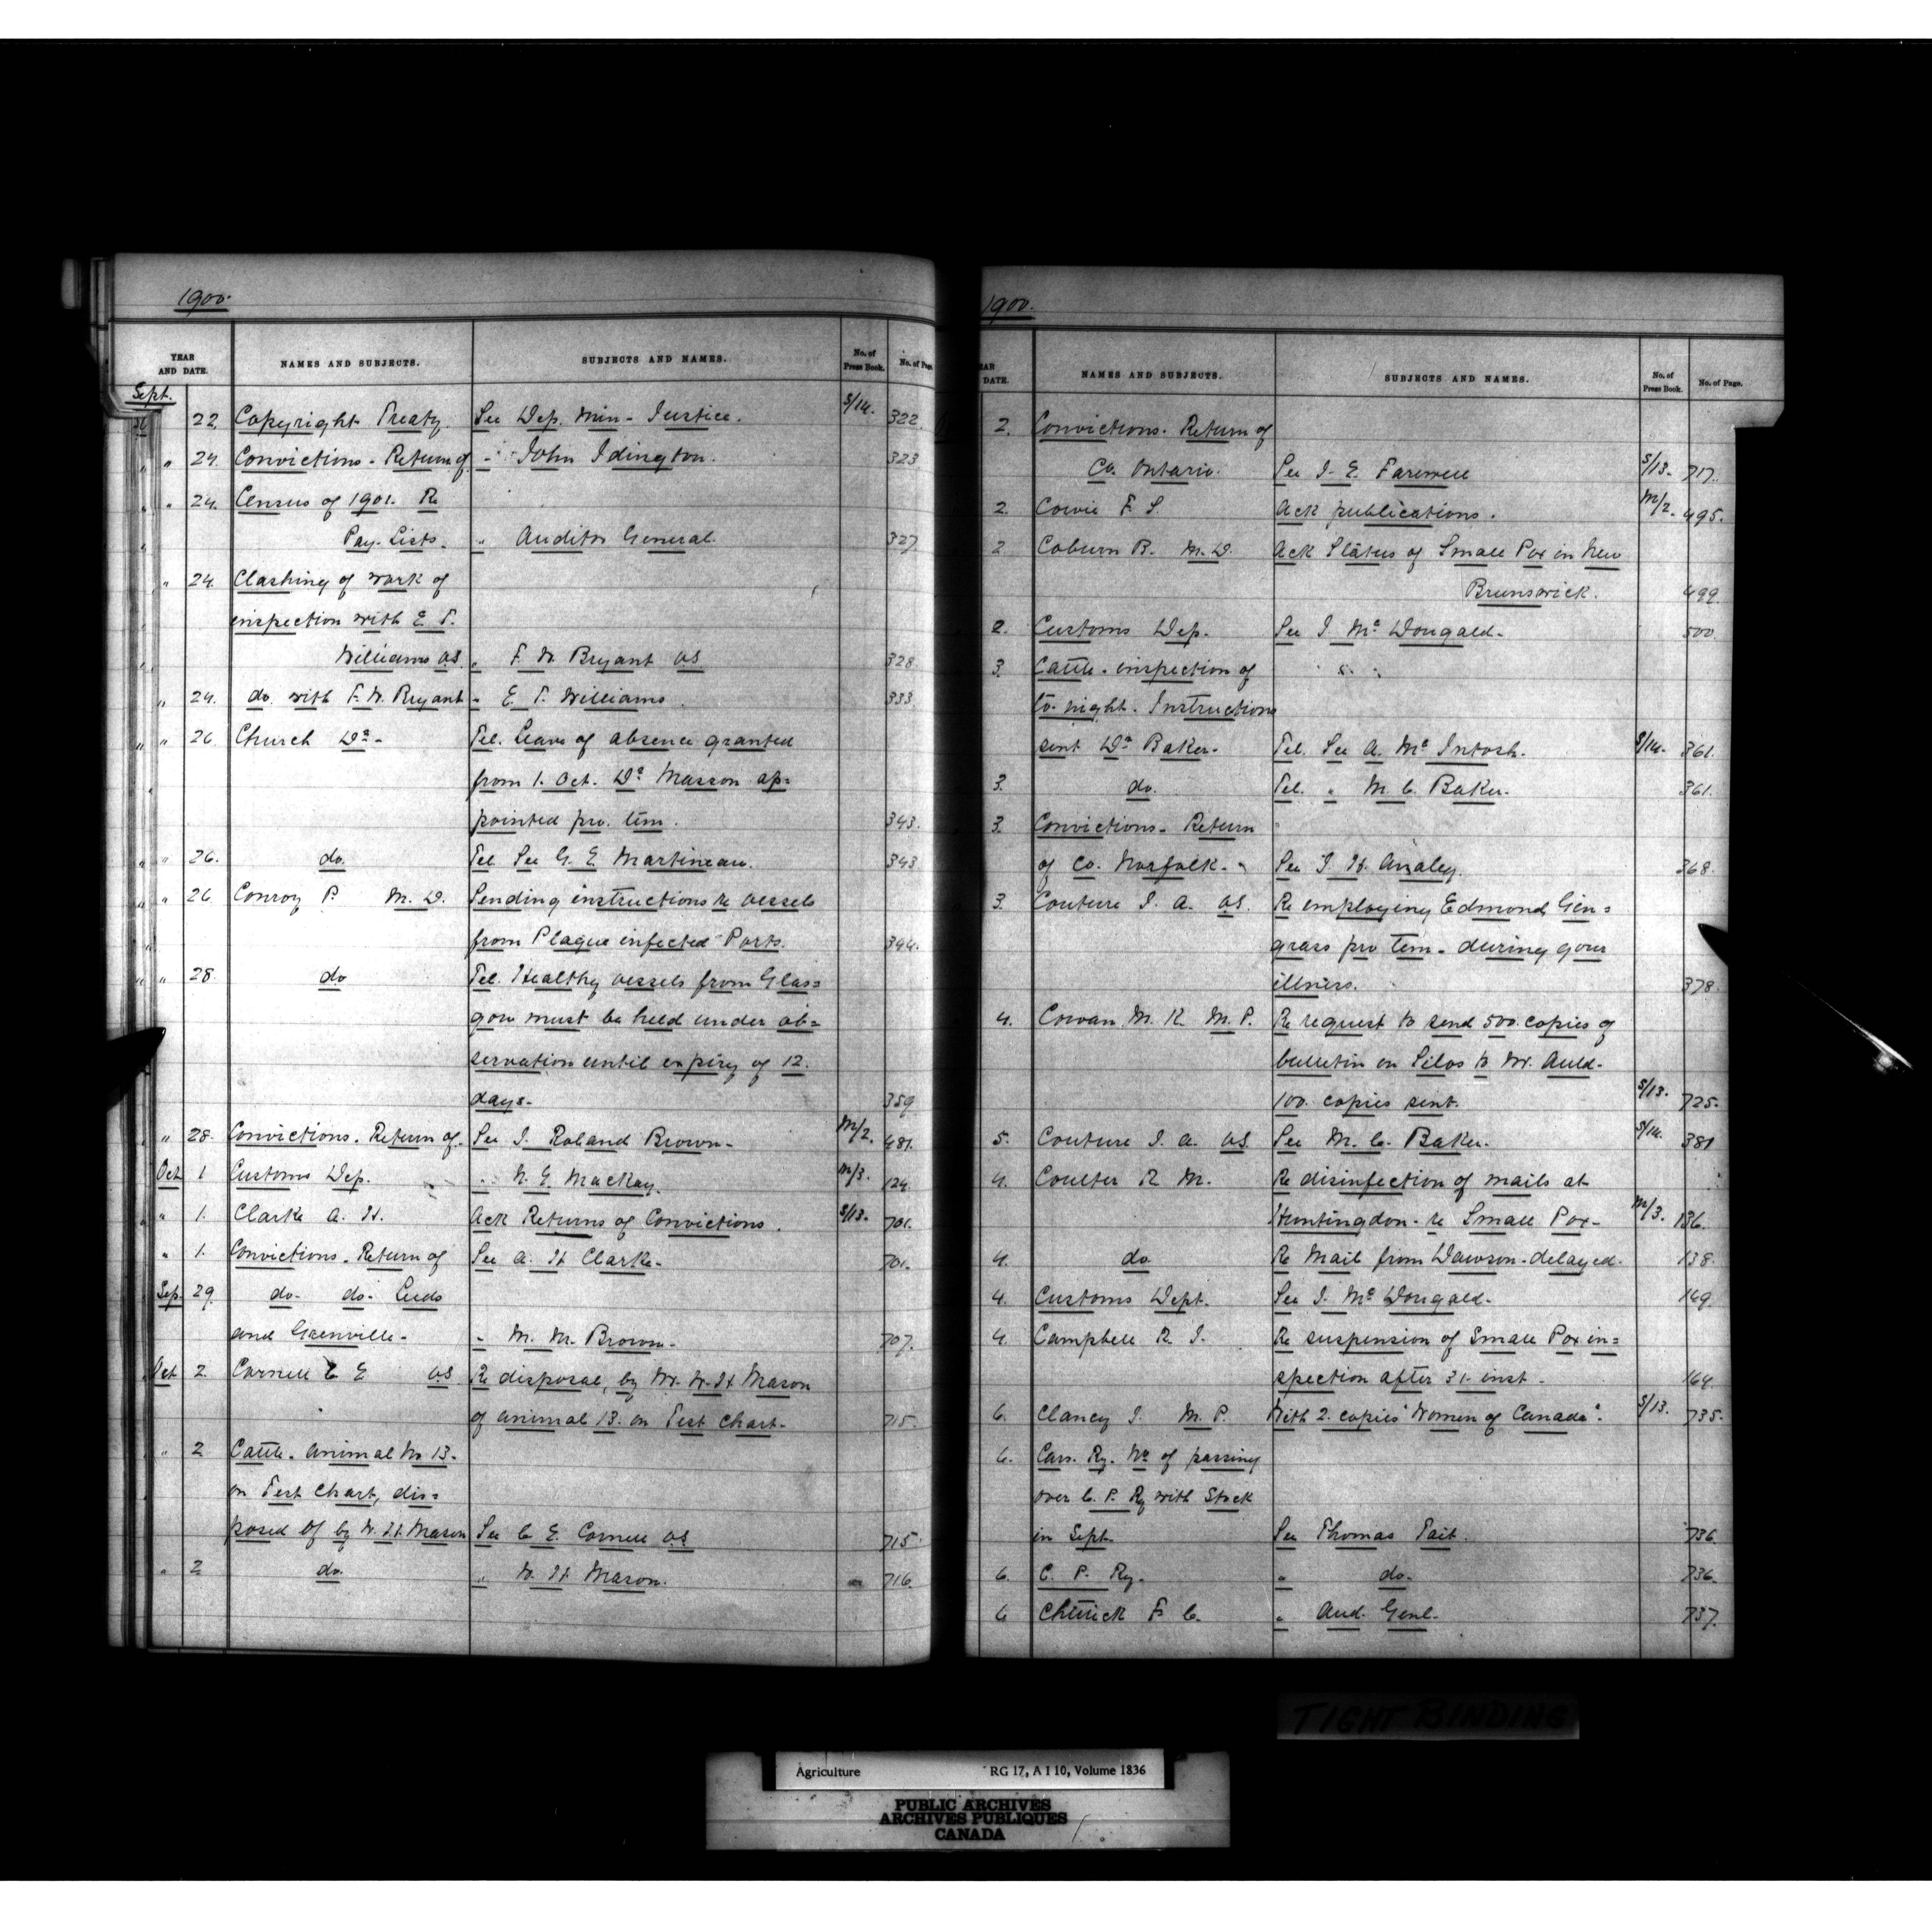 1900.
YEAR AND DATE. NAMES AND SUBJECTS. SUBJECTS AND NAMES. No. of Press Book. No. of Page.
Sept.
22 Copyright Treaty. See Dep. Min - Justice. S/14. 322
" 24. Convictions - Return of " John Idington. 323
" 24. Census of 1901. Re
Pay-Lists. " Auditor General. 327
" 24. Clashing of work of
inspection with E. T.
Williams VS. " F. W. Bryant VS 328
" 24. do. with F. W. Bryant " E. T. Williams. 333
" 26 Church Dr - Tel. Leave of absence granted
from 1. Oct. Dr Masson ap=
pointed pro. tem. 343.
" 26. do. Tel. See G. E. Martineau. 343
" 26 Conroy P. M.D. Sending instructions re vessels
from Plague infected Ports. 344.
" 28. do Tel. Healthy vessels from Glas=
gow must be held under ob=
servation until expiry of 12.
days. 359
" 28. Convictions. Return of. See J. Roland Brown. M/2. 481.
Oct 1 Customs Dep. " N. E. MacKay. M/3. 124.
" 1. Clarke A. H. Ack Returns of Convictions. S/13. 701.
" 1. Convictions. Return of See A. H Clarke. 701.
Sep. 29. do. do. Leeds
and Grenville. " M. M. Brown. 707.
Oct 2. Cornell C E VS Re disposal, by Mr. W. H. Mason
of animal 13. on Test Chart. 715.
" 2 Cattle. Animal No 13.
on Test Chart, dis=
posed of by W. H. Mason See C E. Cornell VS 715.
" 2 do. " W. H. Mason. 716.
1900.
YEAR DATE. NAMES AND SUBJECTS. SUBJECTS AND NAMES. No. of Press Book. No. of Page.
2. Convictions. Return of
Co. Ontario. See J. E. Farewell S/13. 717.
2. Cowie F. S. Ack publications. M/2. 495.
2 Coburn B. M.D. Ack Status of Small Pox in New
Brunswick. 499.
2. Customs Dep. See J. Mc Dougald. 500.
3. Cattle. inspection of
to-night. Instructions
sent Dr Baker. Tel. See A. Mc Intosh. S/14. 361.
3. do. Tel. " M. C. Baker. 361.
3. Convictions. Return
of Co. Norfolk. See J. H. Ansley. 368.
3. Couture J. A. VS. Re employing Edmond Gin=
grass pro tem. during your
illness. 378.
4. Cowan M. K. M.P. Re request to send 500. copies of
bulletin on Silos to Mr. Auld.
100. copies sent. S/13. 725.
5. Couture J. A. VS. See M. C. Baker. S/14. 381
4. Coulter R. M. Re disinfection of mails at
Huntingdon. re Small Pox. M/3. 136.
4. do Re Mail from Dawson-delayed. 138.
4. Customs Dept. See J. Mc Dougald. 149.
4. Campbell R. J. Re suspension of Small Pox in=
spection after 31. inst. 164.
6. Clancy J. M.P. With 2. copies "Women of Canada". S/13. 735.
6. Cars. Ry. No of passing
over C. P. Ry with Stock
in Sept. See Thomas Tait. 736.
6. C. P. Ry. " do. 736.
6 Chittick F. C. " Aud. Genl. 737.
TIGHT BINDING
Agriculture RG 17, A I 10, Volume 1836
PUBLIC ARCHIVES
ARCHIVES PUBLIQUES
CANADA